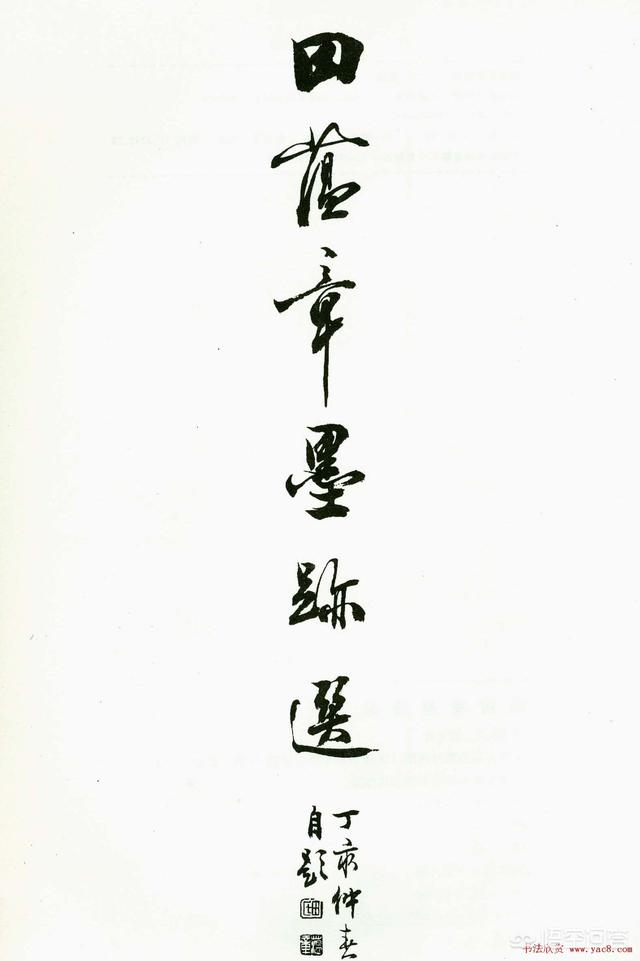 田蕴章墨跡選
丁亥仲春
自題
悟空问答
书法欣赏 www.yac8.com